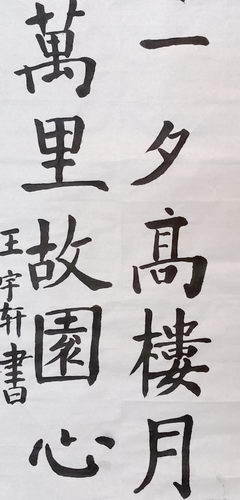 一夕高樓月
萬里故園心
王宇轩書